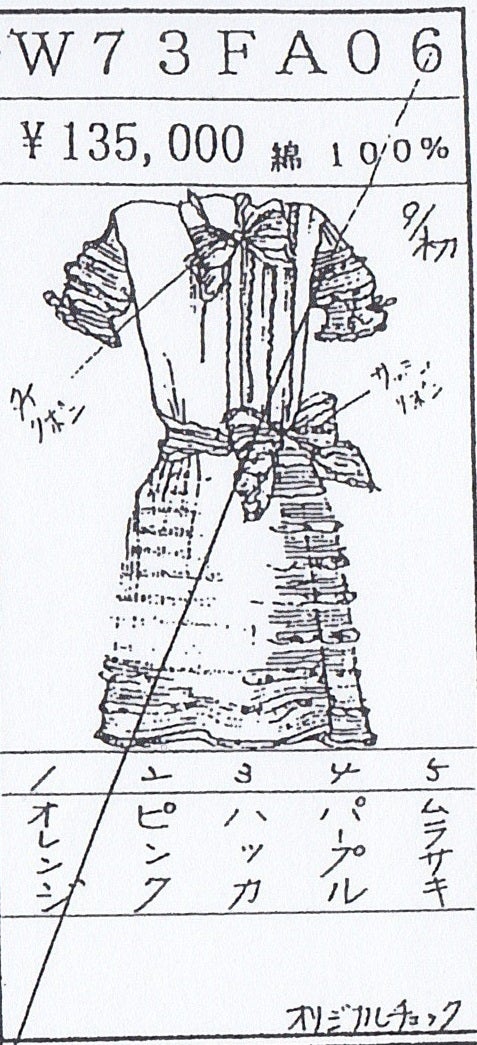 W73FA06
¥135,000 綿 100%
9/初
リボン
リボン
1 2 3 4 5
オレンジ ピンク ハッカ パープル ムラサキ
オリジナルチェック